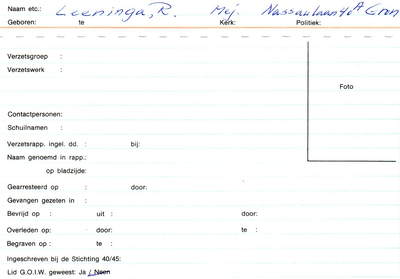 Naam etc.: Leeninga, R. Mej. Nassaulaan 40A Gron
Geboren: te Kerk: Politiek:
Verzetsgroep :
Verzetswerk :
Foto
Contactpersonen:
Schuilnamen :
Verzetsrapp. ingel. dd. : bij:
Naam genoemd in rapp.:
op bladzijde:
Gearresteerd op : door:
Gevangen gezeten in :
Bevrijd op : uit : door:
Overleden op: door: te :
Begraven op : te :
Ingeschreven bij de Stichting 40/45:
Lid G.O.I.W. geweest: Ja / Neen